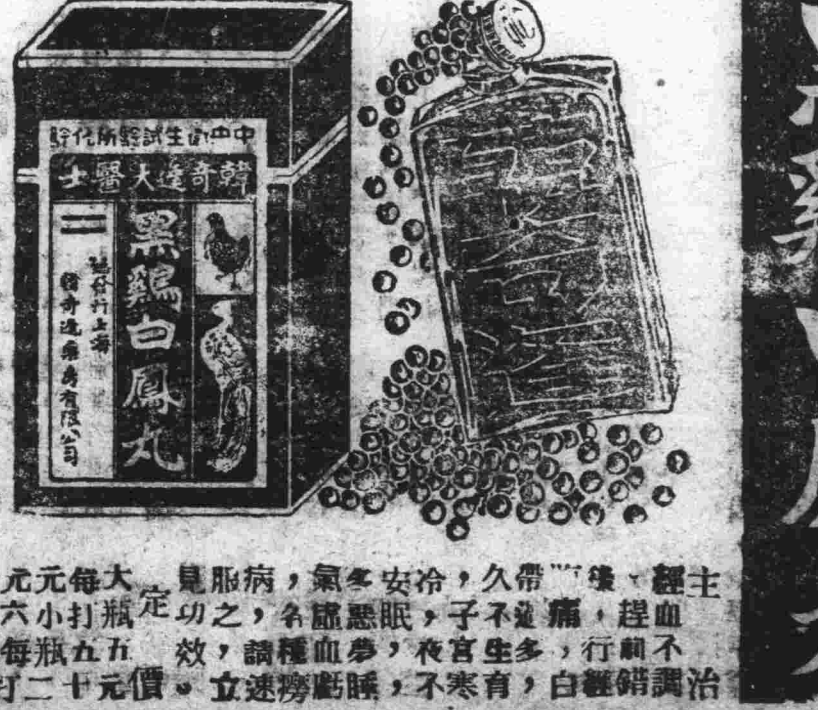 中央衛生試驗所化驗
韓奇逢大醫士
黑鷄白鳳丸
總發行上海
韓奇逢藥房有限公司
主治
經血不調
、趕前錯
後,行經
腹痛,白
帶過多,
久不生育
,子宮寒
冷,夜不
安眠,,
多惡夢睡
氣虛血虧
,名種癆
病,請速
服之,立
見功效。
定價
大瓶五元
每打五十
元小瓶二
元六每打